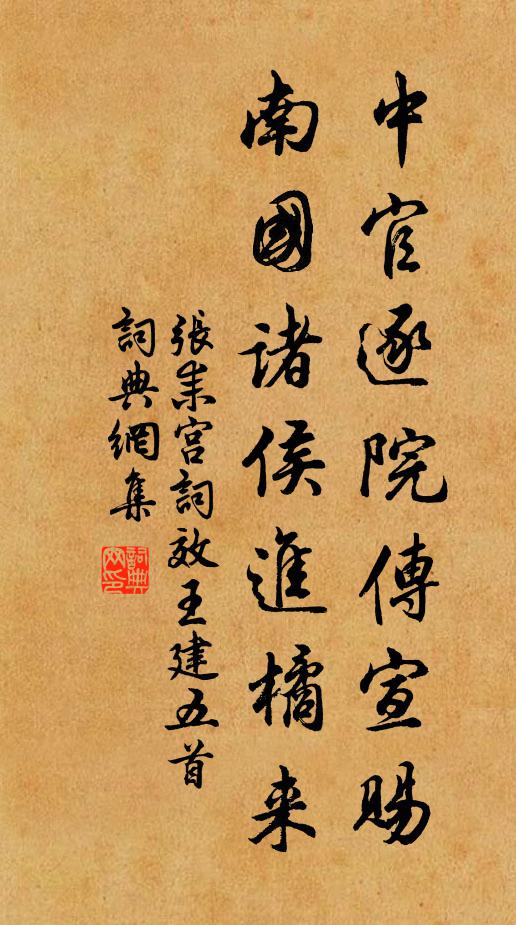 中官逐院傳宣賜
南國諸侯進橘来
張耒宮詞效王建五首
詞典網集
詞典網印